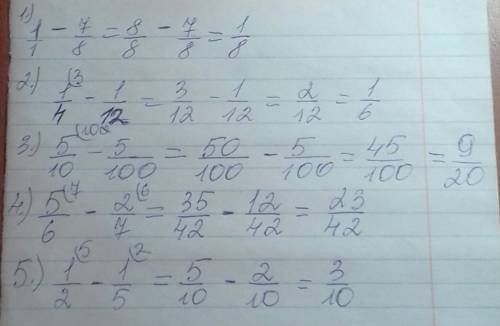 1) 1/1 - 7/8 = 8/8 - 7/8 = 1/8
2.) 1/4 (3 - 1/12 = 3/12 - 1/12 = 2/12 = 1/6
3.) 5/10 (10 - 5/100 = 50/100 - 5/100 = 45/100 = 9/20
4.) 5/6 (7 - 2/7 (6 = 35/42 - 12/42 = 23/42
5.) 1/2 (5 - 1/5 (2 = 5/10 - 2/10 = 3/10